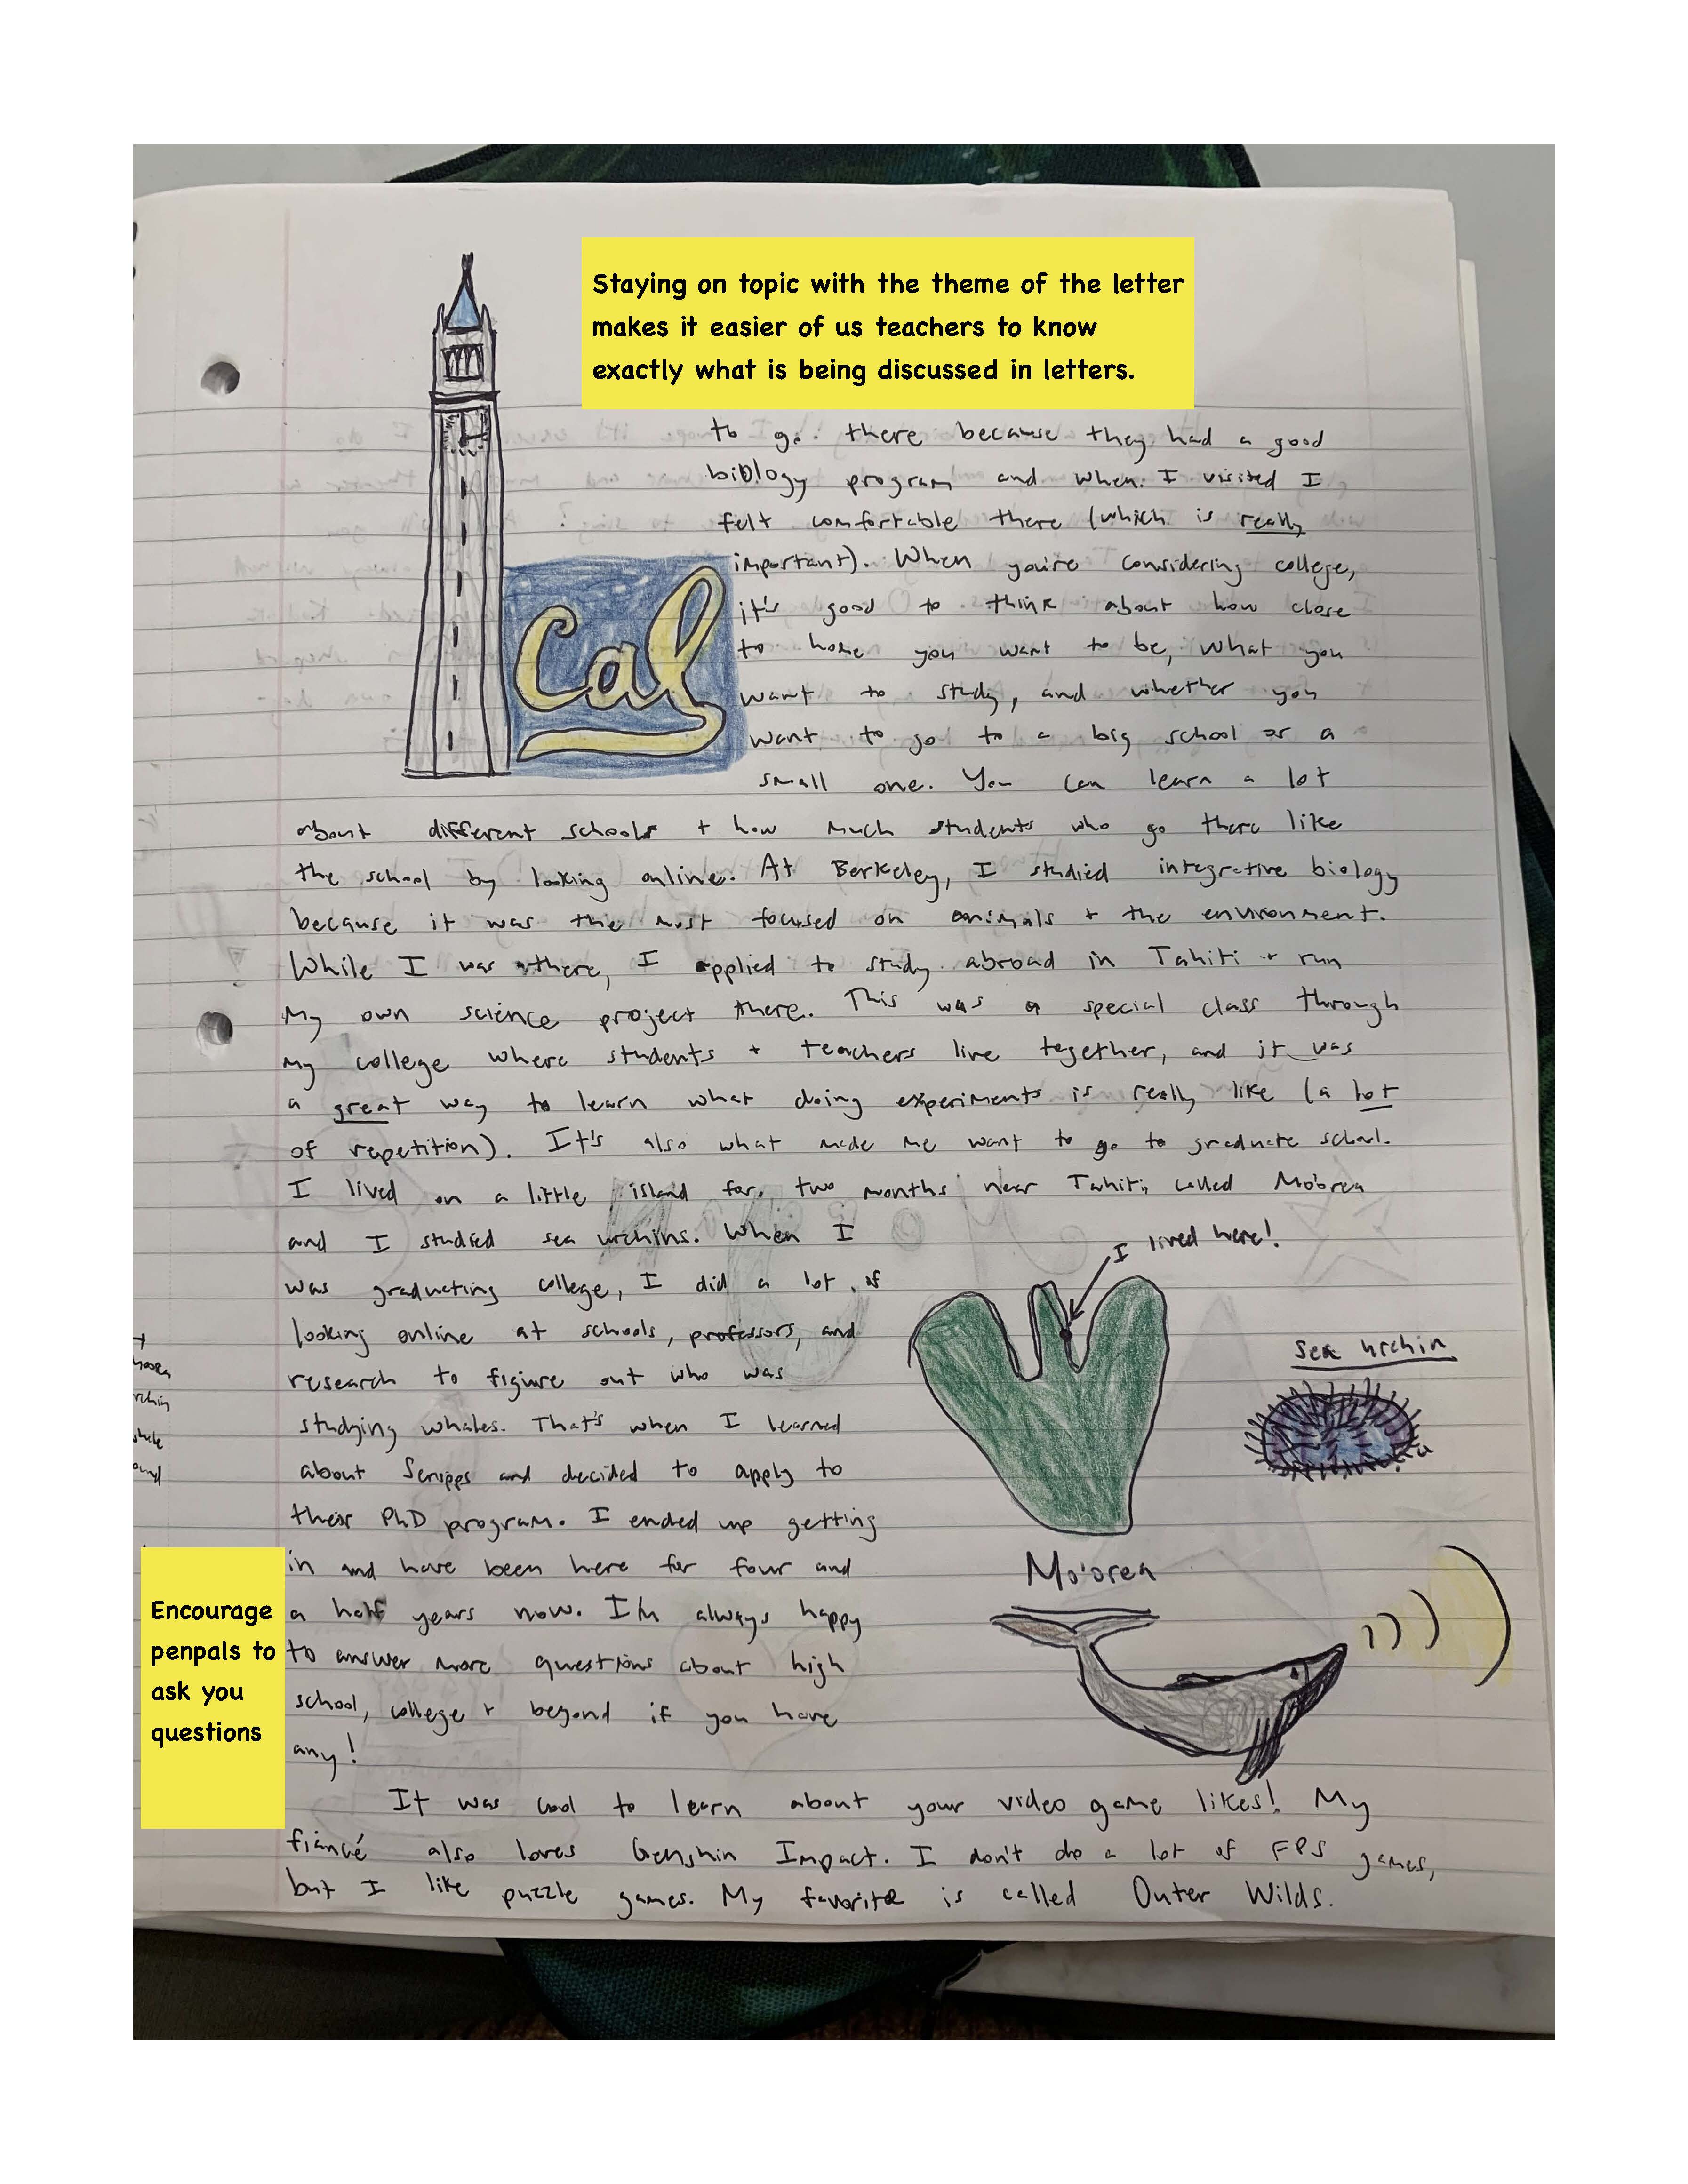 Staying on topic with the theme of the letter
makes it easier of us teachers to know
exactly what is being discussed in letters.
to go there because they had a good
biology program and when I visited I
felt comfortable there (which is really
important). When you're considering college,
it's good to think about how close
to home you want to be, what you
want to study, and whether you
want to go to a big school or a
small one. You can learn a lot
Cal
about different schools + how much students who go there like
the school by looking online. At Berkeley, I studied integrative biology
because it was the most focused on animals + the environment.
While I was there, I applied to study abroad in Tahiti + run
my own science project there. This was a special class through
my college where students + teachers live together, and it was
a great way to learn what doing experiments is really like (a lot
of repetition). It's also what made me want to go to graduate school.
I lived on a little island for two months near Tahiti, called Mo'orea
and I studied sea urchins. When I
was graduating college, I did a lot of
looking online at schools, professors, and
research to figure out who was
studying whales. That's when I learned
about Scripps and decided to apply to
their PhD program. I ended up getting
in and have been here for four and
a half years now. I'm always happy
to answer more questions about high
school, college + beyond if you have
any!
I lived here!
sea urchin
Mo'orea
Encourage
penpals to
ask you
questions
It was cool to learn about your video game likes! My
fiancé also loves Genshin Impact. I don't do a lot of FPS games,
but I like puzzle games. My favorite is called Outer Wilds.